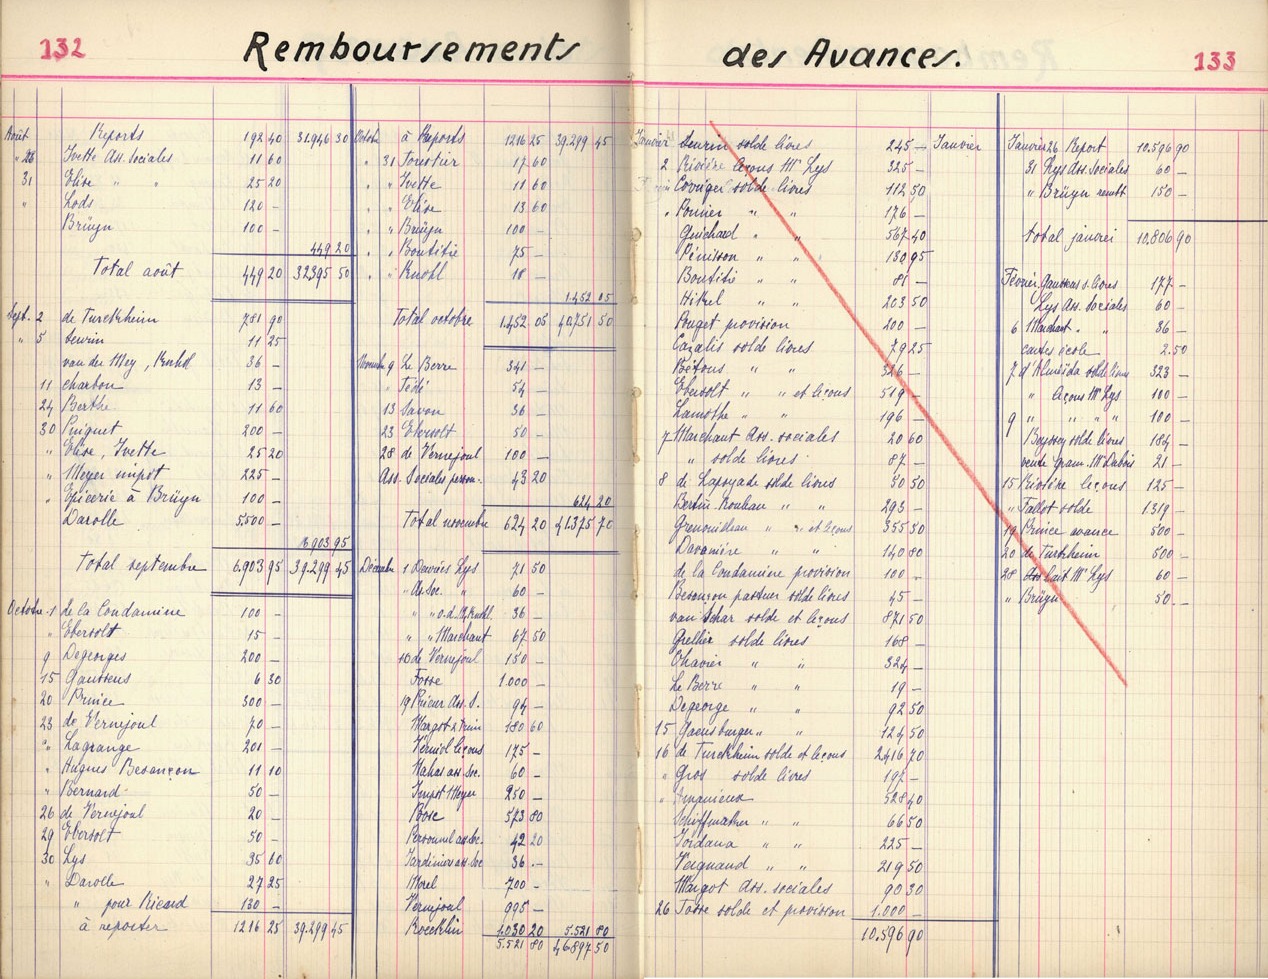 132
Remboursements
Août Reports 192 40 31.946 30
" 28 Ivette Ass. Sociales 11 60
31 Elise " " 25 20
" Lods 120 -
Brüyn 100 -
449 20
Total août 449 20 32395 50
Sept. 2 de Turckheim 781 90
" 5 Seurin 11 25
van der Mey, Knohl 36 -
11 charbon 13 -
24 Berthe 11 60
30 Puignet 200 -
" Elise, Ivette 25 20
" Meyer impôt 225 -
" Epicerie à Brüyn 100 -
Darolle 5.500 -
6.903 95
Total septembre 6.903 95 39.299 45
Octobre 1 de la Condamine 100 -
" Ebersolt 15 -
9 Degeorges 200 -
15 Gaussens 6 30
20 Prince 300 -
23 de Vernejoul 70 -
" Lagrange 201 -
" Augues Besançon 11 10
" Bernard 50 -
26 de Vernejoul 20 -
29 Ebersolt 50 -
30 Lys 35 60
" Darolle 27 25
" pour Ricard 130 -
à reporter 1216 25 39.299 45
Octobre à Reports 1216 25 39.299 45
" 31 Forestier 17 60
" " Ivette 11 60
" " Elise 13 60
" " Brüyn 100 -
" " Boutitié 75 -
" " Knohl 18 -
1.452 05
Total octobre 1.452 05 40.751 50
Novembre 9 Le Berre 341 -
" Fédé 54 -
13 Savon 36 -
23 Ebersolt 50 -
28 de Vernejoul 100 -
Ass. Sociales person. 43 20
624 20
Total novembre 624 20 41.375 70
Décembre 1 Lys 71 50
" As. Soc. " 60 -
" " o.d. M, Knohl 36 -
" " Marchant 67 50
10 de Vernejoul 150 -
Fosse 1.000 -
19 Prieur Ass. S. 94 -
Margot 2 trim 180 60
Verniol leçons 175 -
Mahas ass. Soc. 60 -
Impot Meyer 250 -
Bosc 573 80
Personnel as. Soc. 42 20
Jardinier ass. Soc 36 -
Morel 700 -
Vernejoul 995 -
Roecklin 1.030 20 5.521 80
5.521 80 46897 50
des Avances.
133
Janvier Seurin solde livres 245 - Janvier
2 Riolère leçons Mr Lys 325 -
Corriger solde livres 112 50
" Ponier " " 176 -
Guichard " " 567 40
Pénisson " " 130 95
Boutitié " " 81 -
Hikel " " 203 50
Pouget provision 200 -
Cazalis solde livres 79 25
Bétous " " 326 -
Ebersolt " " et leçons 519 -
Lamothe " " 196 -
7 Marchant Ass. sociales 20 60
" solde livres 87 -
8 de Lapoyade solde livres 30 50
Bertin-Rouleau " " 293 -
Grenouilleau " " et leçons 355 30
Davanière " " 140 80
de la Condamine provision 100 -
Besançon pasteur solde livres 45 -
van Schar solde et leçons 871 50
Grellier solde livres 168 -
Chavier " " 324 -
Le Berre " " 19 -
Degeorge " " 92 50
15 Gaensburger " " 124 50
16 de Turckheim solde et leçons 2416 70
" Gros solde livres 197 -
" Armanieux 528 40
Schiffmacher " " 66 50
Jordana " " 225 -
Veignaud " " 219 50
Margot Ass. sociales 90 30
26 Fosse solde et provision 1.000 -
10.596 90
Janvier 26 Report 10.596 90
31 Lys Ass. Sociales 60 -
" Brüyn rembt 150 -
total janvier 10.806 90
Février Gaussens s. livres 177 -
Lys Ass. Sociales 60 -
6 Marchant " " 36 -
cartes école 2.50
7 d'Alméïda solde livres 323 -
" leçons Mr Lys 100 -
9 " " " " 100 -
Boyssey solde livres 184 -
vente gram. Mr Dubois 21 -
15 Riolère leçons 125 -
" Fallot solde 1319 -
19 Prince avance 500 -
20 de Turkheim 500 -
28 lait Mr Lys 60 -
" Brüyn 50 -